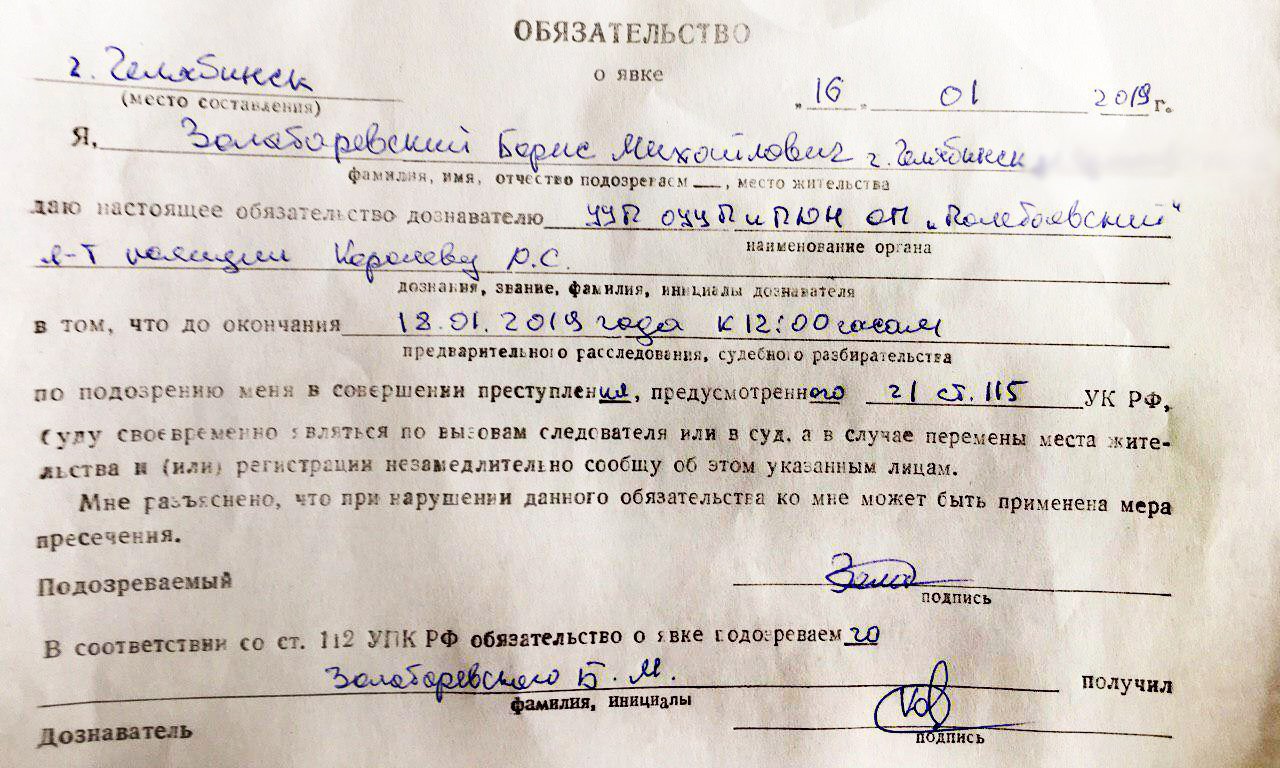 ОБЯЗАТЕЛЬСТВО
о явке
г. Челябинск
(место составления)
„ 16 „ 01 2019 г.
Я, Золотаревский Борис Михайлович г. Челябинск
фамилия, имя, отчество подозреваем , место жительства
даю настоящее обязательство дознавателю УУП ОУУП и ПДН ОП „Полетаевский"
наименование органа
л-т полиции Королеву Р.С.
дознания, звание, фамилия, инициалы дознавателя
в том, что до окончания 18.01.2019 года к 12:00 часам
предварительного расследования, судебного разбирательства
по подозрению меня в совершении преступления, предусмотренного ч1 ст. 115 УК РФ,
буду своевременно являться по вызовам следователя или в суд, а в случае перемены места жите-
льства и (или) регистрации незамедлительно сообщу об этом указанным лицам.
Мне разъяснено, что при нарушении данного обязательства ко мне может быть применена мера
пресечения.
Подозреваемый
подпись
В соответствии со ст. 112 УПК РФ обязательство о явке подозреваемго
Золотаревского Б. М. получил
фамилия, инициалы
Дознаватель
подпись